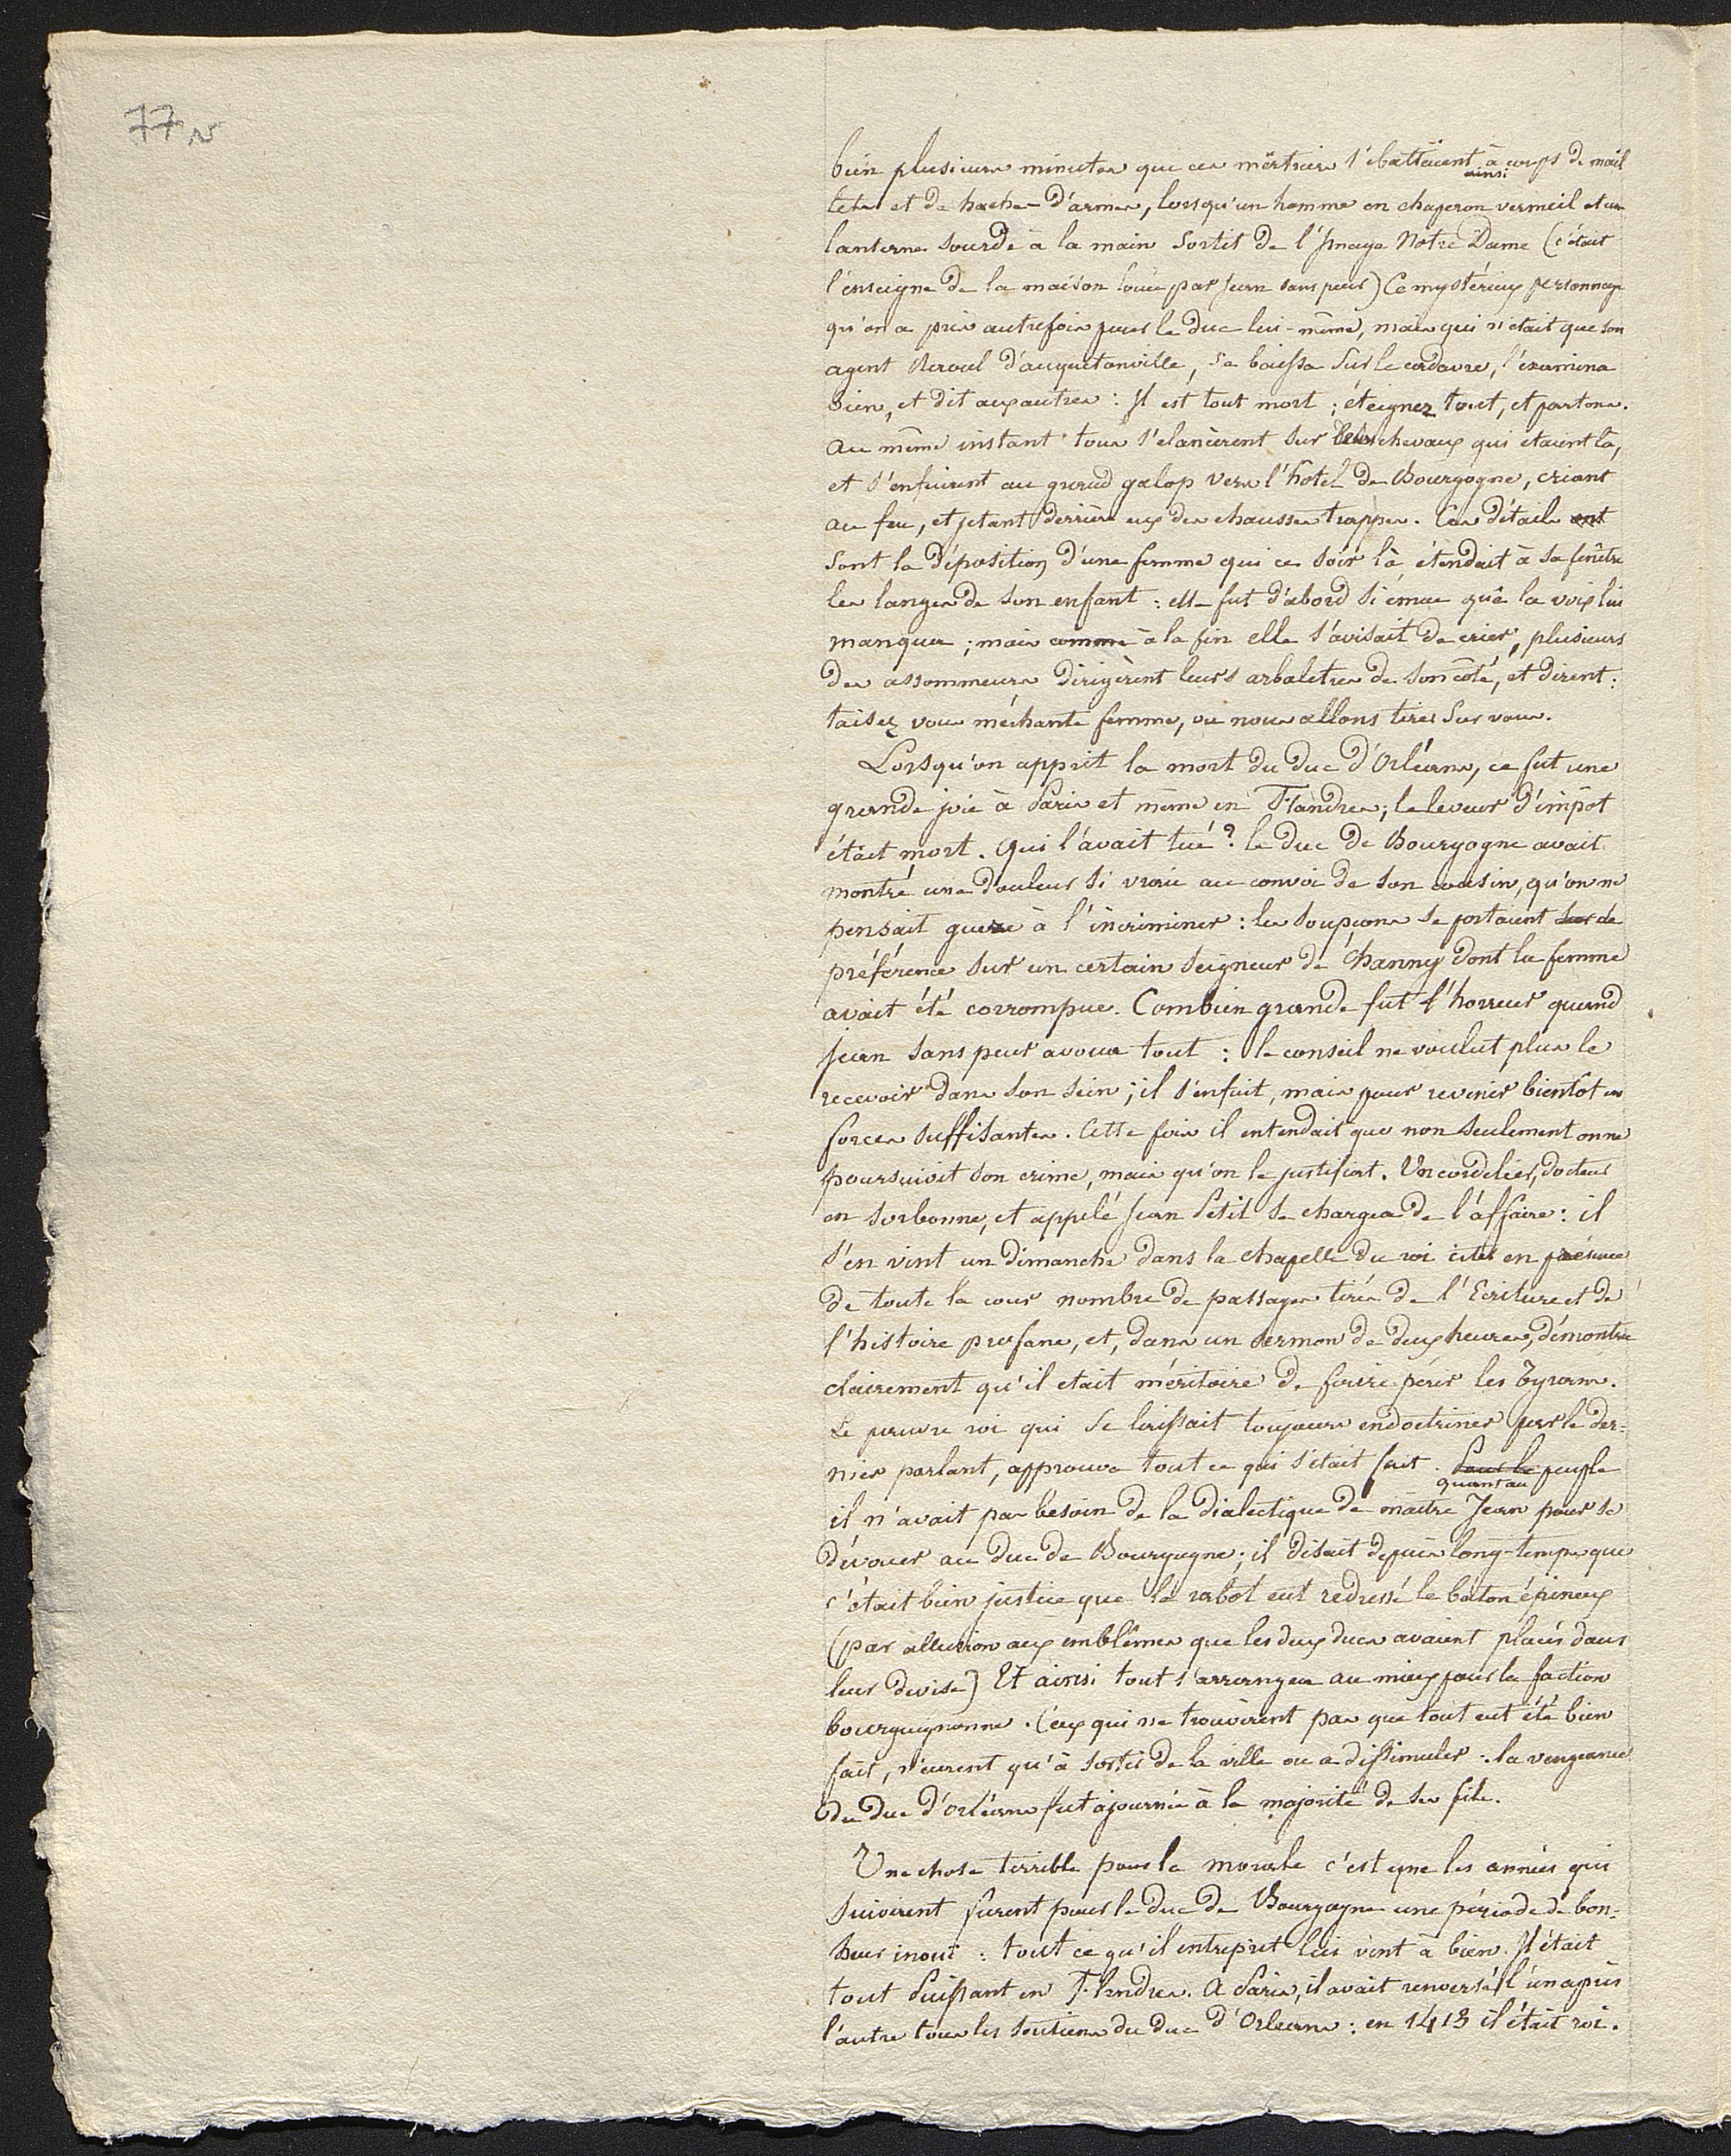 77 v
bien plusieurs minutes que ces mëurtriers s'ebattaient ainsi à coups de mail
lets et de hache-d'armes, lorsqu'un homme en chaperon vermeil et une
lanterne sourde à la main sortit de l'Image Notre Dame (c'était
l'enseigne de la maison louée par Jean sans peur) Ce mystérieux personnage
qu'on a pris autrefois pour le duc lui-même, mais qui n'était que son
agent Raoul d'auquetonville, se baissa sur le cadavre, l'examina
bien, et dit aux autres : Il est tout mort ; éteignez tout, et partons.
au même instant tous s'elancèrent sur leurs chevaux qui étaient là,
et s'enfuirent au grand galop vers l'hotel de Bourgogne, criant
au feu, et jetant derrière eux des chausses trappes. Ces détails ont
sont la déposition d'une femme qui ce soir là étendait à sa fenêtre
les langes de son enfant : elle fut d'abord si émue que la voix lui
manqua ; mais comme à la fin elle s'avisait de crier, plusieurs
des assommeurs dirigèrent leurs arbaletres de son côté, et dirent :
taisez vous méchante femme, ou nous allons tirer sur vous.
Lorsqu'on apprit la mort du duc d'Orléans, ce fut une
grande joie à Paris et même en Flandres ; le leveur d'impôt
était mort. Qui l'avait tué ? le duc de Bourgogne avait
montré une douleur si vraie au convoi de son cousin, qu'on ne
pensait guere à l'incriminer : les soupçons se portaient sur de
préférence sur un certain seigneur de Channy dont la femme
avait été corrompue. Combien grande fut l'horreur quand
Jean sans peur avoua tout : le conseil ne voulut plus le
recevoir dans son sein ; il s'enfuit, mais pour revenir bientôt en
forces suffisantes. Cette fois il entendait que non seulement on ne
poursuivit son crime, mais qu'on le justifiat. Un cordelier, docteur
en sorbonne, et appelé Jean Petit se chargea de l'affaire : il
s'en vint un dimanche dans la chapelle du roi citer en présence
de toute la cour nombre de passages tirés de l'Ecriture et de
l'histoire profane, et, dans un sermon de deux heures, démontra
clairement qu'il etait méritoire de faire périr les tyrans.
Le pauvre roi qui se laissait toujours endoctriner par le der=
nier parlant, approuva tout ce qui s'était fait. Pour le quant au peuple
il n'avait pas besoin de la dialectique de maitre Jean pour se
dévouer au duc de Bourgogne ; il disait depuis long-temps que
c'était bien justice que le rabot eut redressé le baton épineux
(par allusion aux emblêmes que les deux ducs avaient placés dans
leur devise) Et ainsi tout s'arrangea au mieux pour la faction
bourguignonne. Ceux qui ne trouvèrent pas que tout eut été bien
fait, n'eurent qu'à sortir de la ville ou a dissimuler : la vengeance
du duc d'Orléans fut ajournée à la majorité de ses fils.
Une chose terrible pour la morale c'est que les années qui
suivirent furent pour le duc de Bourgogne une période de bon-
heur inoui : tout ce qu'il entreprit lui vint à bien. Il était
tout Puissant en Flandres. A Paris, il avait renversé l'un après
l'autre tous les soutiens du duc d'Orleans : en 1413 il était roi.